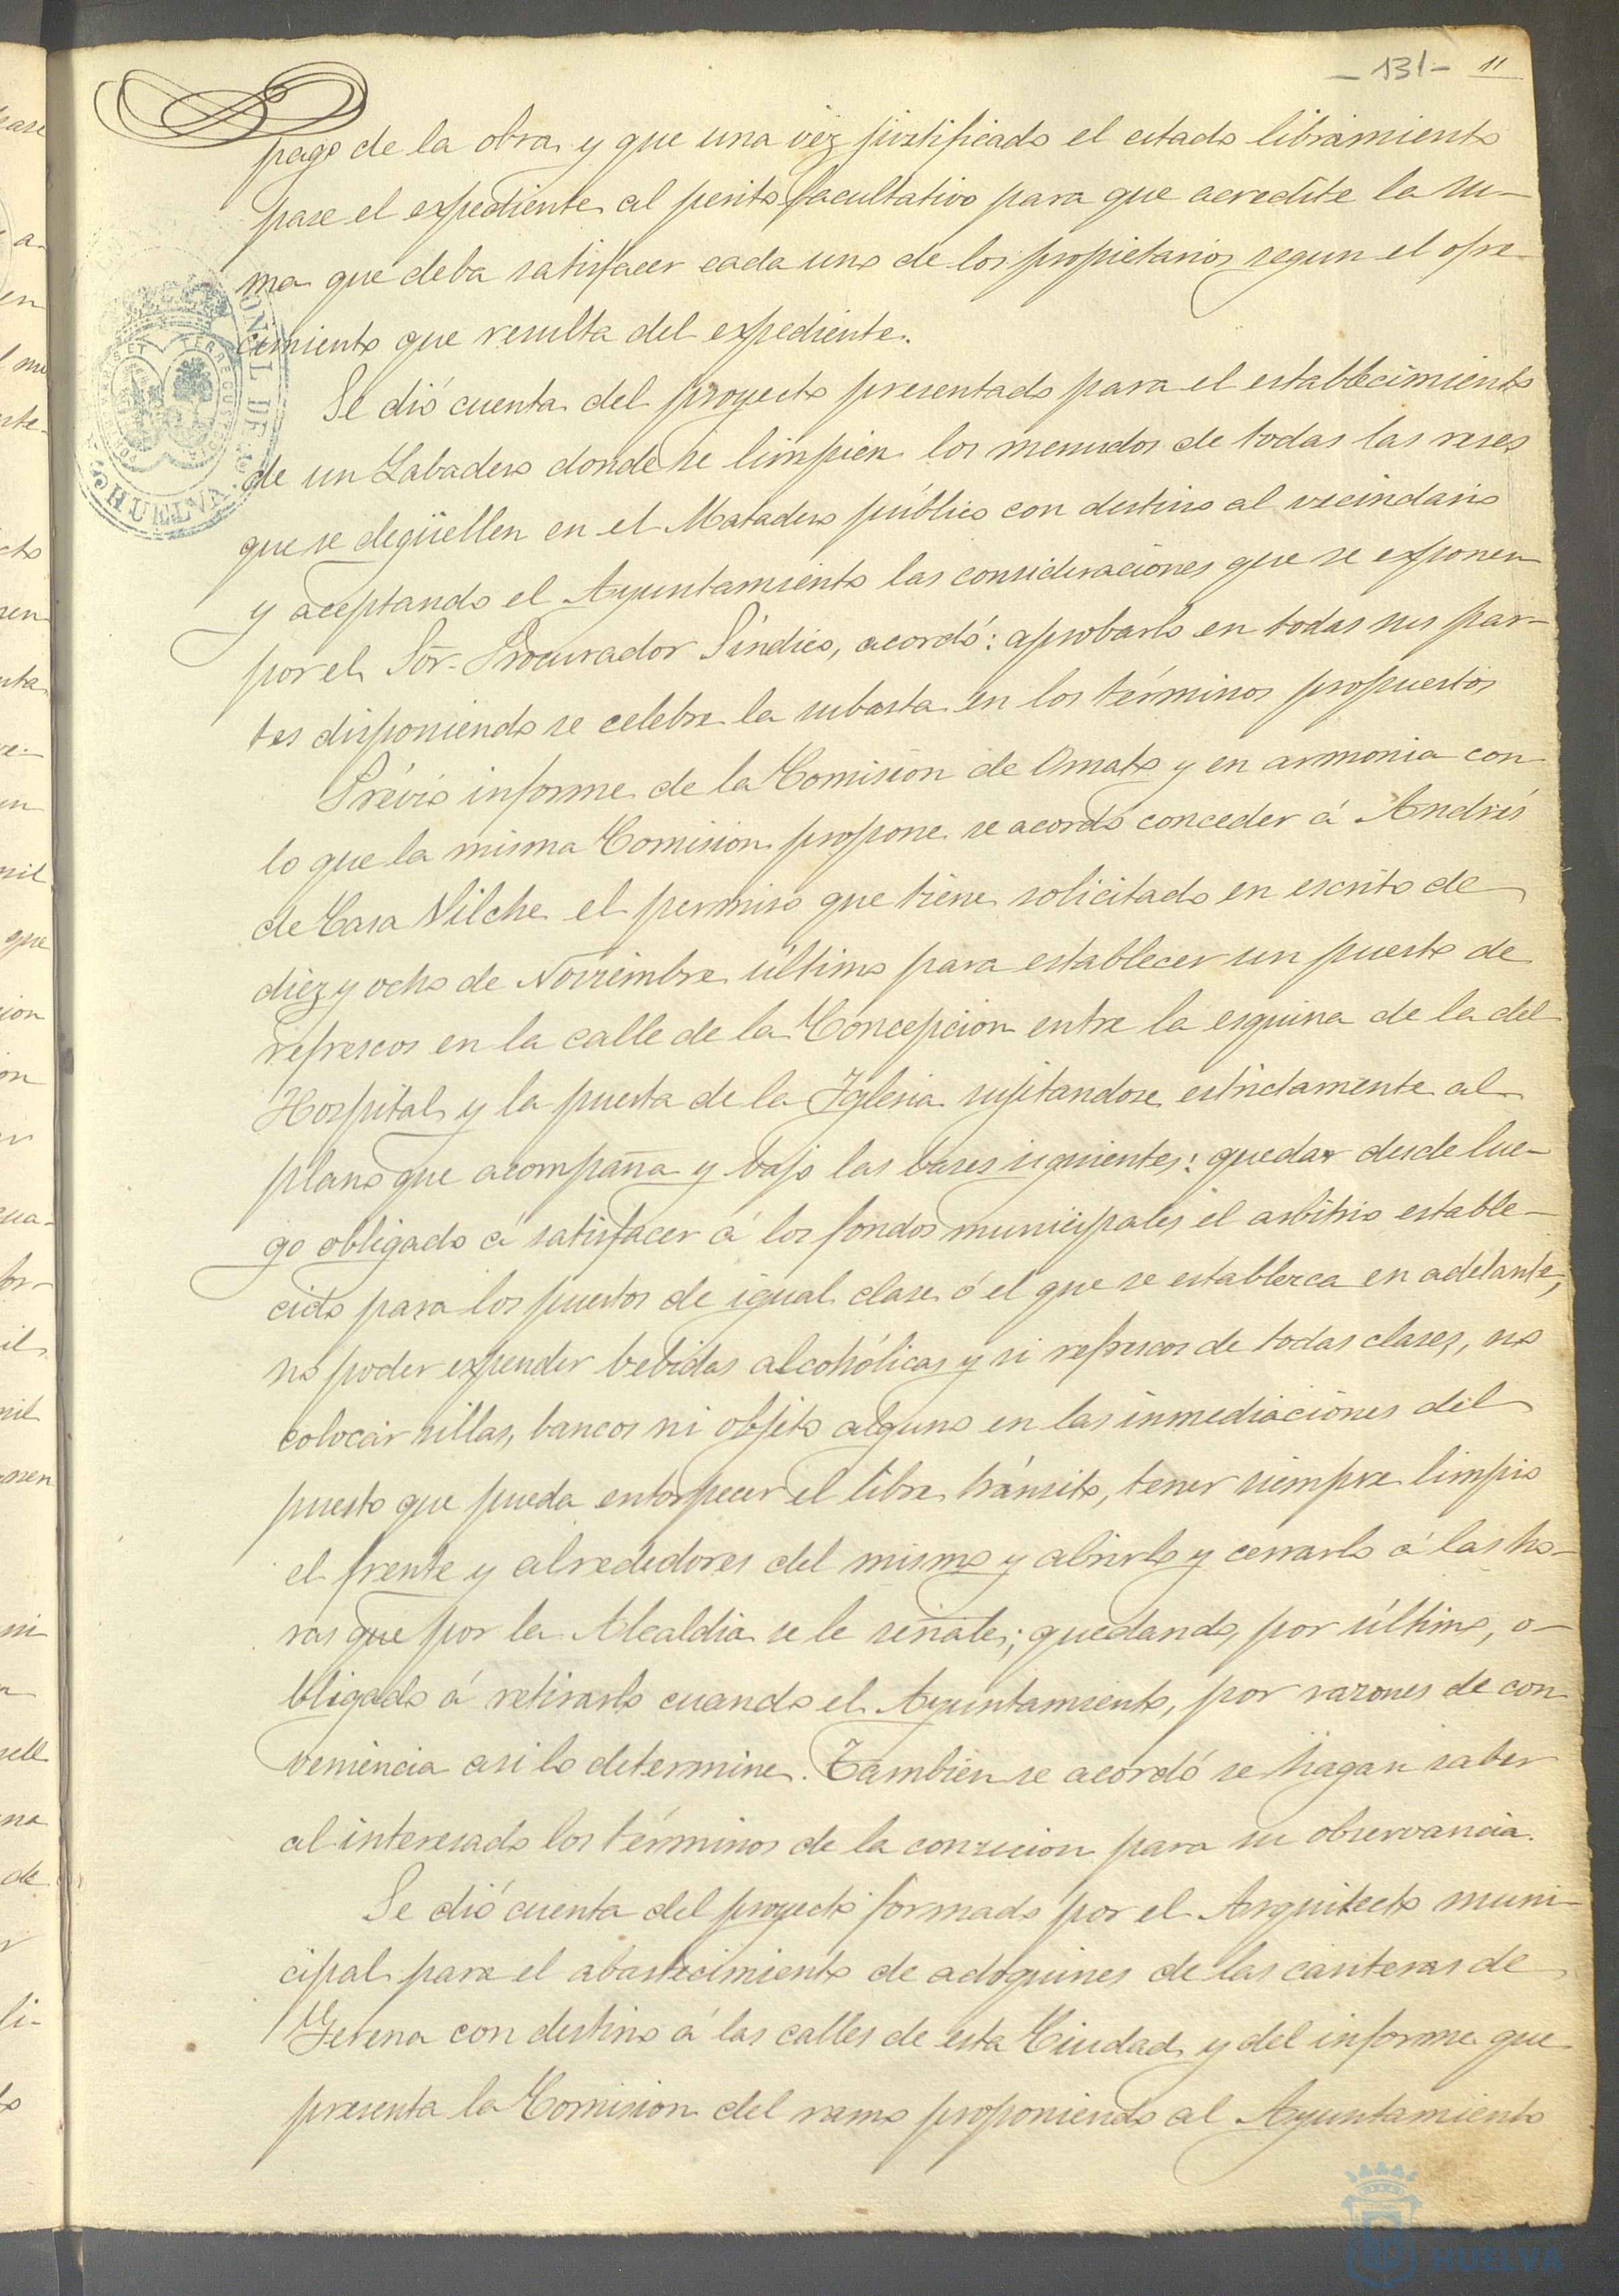 -131- 11
pago de la obra y que una véz justificado el citado libramiento
pase el expediente al perito facultativo para que acredite la su-
ma que deba satisfacer cada uno de los propietarios segun el ofre-
cimiento que resulta del expediente.
Se dió cuenta del proyecto presentado para el establecimiento
de un Labadero donde se limpien los menudos de todas las reses
que se degüellen en el Matadero público con destino al vecindario
y aceptando el Ayuntamiento las consideraciones que se exponen
por el Sõr. Procurador Síndico, acordó: aprobarlo en todas sus par-
tes disponiendo se celebre la subasta en los términos propuestos
Prévio informe de la Comision de Ornato y en armonia con
lo que la misma Comision propone se acordó conceder á Andrés
de Casa Vilche el permiso que tiene solicitado en escrito de
diez y ocho de Noviembre último para establecer un puesto de
refrescos en la calle de la Concepcion entre la esquina de la del
Hospital y la puerta de la Iglesia sujetandose estrictamente al
plano que acompaña y bajo las bases siguientes: quedar desde lue-
go obligado á satisfacer á los fondos municipales el arbitrio estable-
cido para los puestos de igual clase ó el que se establezca en adelante,
no poder expender bebidas alcohólicas y si refrescos de todas clases, no
colocar sillas, bancos ni objeto alguno en las inmediaciones del
puesto que pueda entorpecer el libre tránsito, tener siempre limpio
el frente y alrededores del mismo y abrirlo y cerrarlo á las ho-
ras que por la Alcaldia se le señale; quedando, por último, o-
bligado á retirarlo cuando el Ayuntamiento, por razones de con-
veniencia asi lo determine. Tambien se acordó se hagan saber
al interesado los términos de la concesion para su observancia.
Se dió cuenta del proyecto formado por el Arquitecto muni-
cipal para el abastecimiento de adoquines de las canteras de
Gerena con destino á las calles de esta Ciudad y del informe que
presenta la Comision del ramo proponiendo al Ayuntamiento
HUELVA
HUELVA